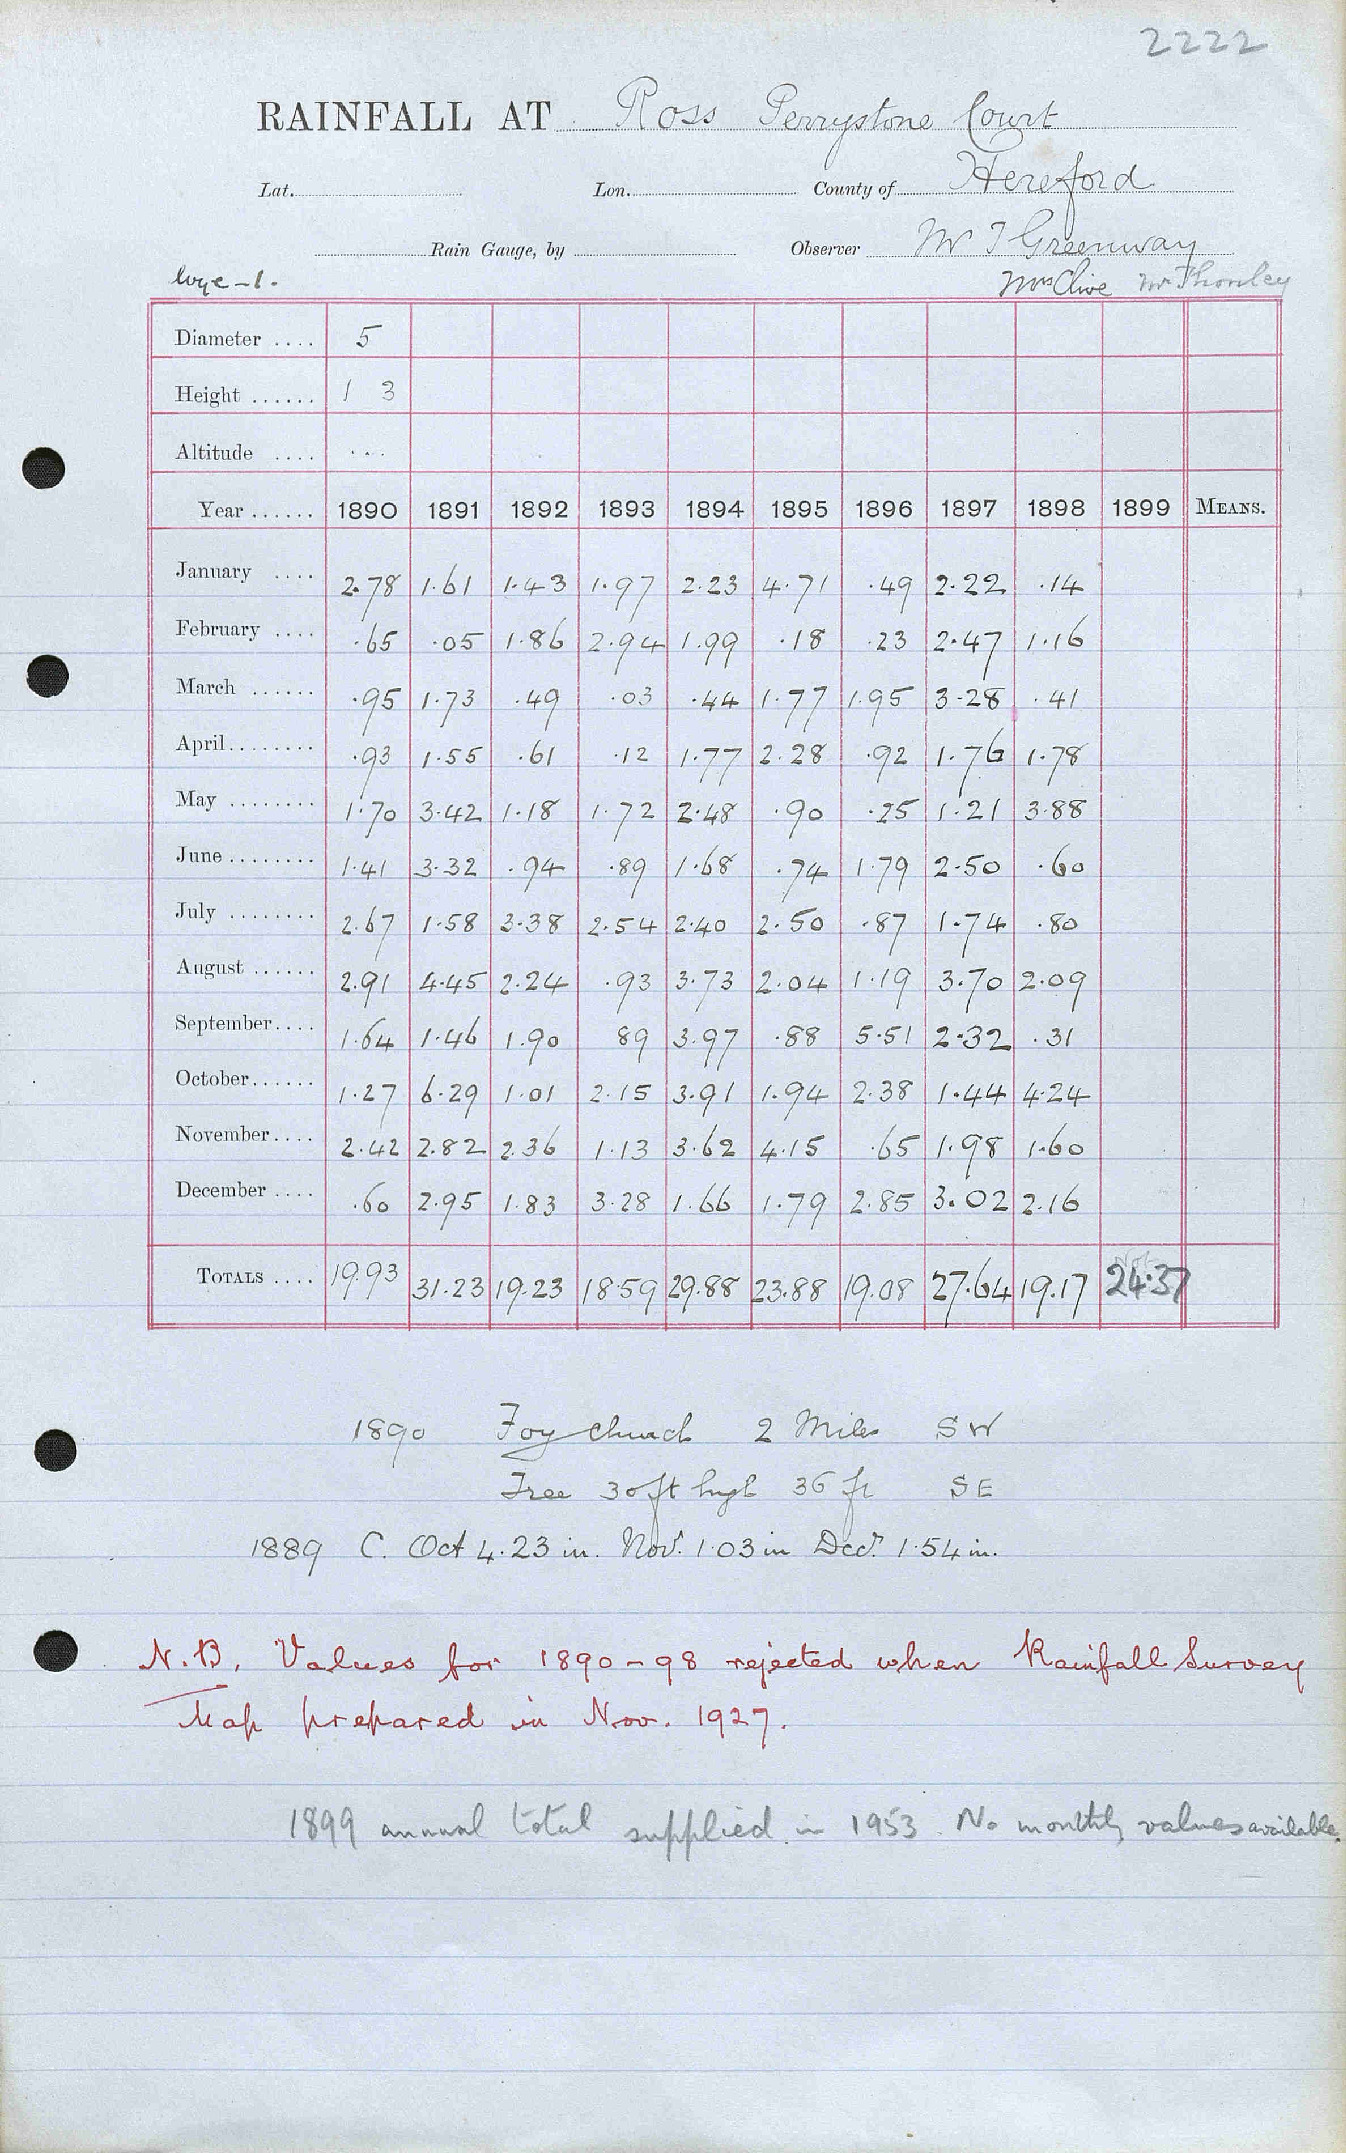 2222
RAINFALL AT Ross Perrystone Court
Lat. Lon. County of Hereford
Rain Gauge, by Observer Mr T Greenway
Wye-1. Mrs Clive Mr Thornley
Diameter .... 5
Height ...... 1 3
Altitude .... ...
Year ...... 1890 1891 1892 1893 1894 1895 1896 1897 1898 1899 MEANS.
January .... 2.78 1.61 1.43 1.97 2.23 4.71 .49 2.22 .14
February .... .65 .05 1.86 2.94 1.99 .18 .23 2.47 1.16
March ...... .95 1.73 .49 .03 .44 1.77 1.95 3.28 .41
April........ .93 1.55 .61 .12 1.77 2.28 .92 1.76 1.78
May ........ 1.70 3.42 1.18 1.72 2.48 .90 .25 1.21 3.88
June ........ 1.41 3.32 .94 .89 1.68 .74 1.79 2.50 .60
July ........ 2.67 1.58 3.38 2.54 2.40 2.50 .87 1.74 .80
August ...... 2.91 4.45 2.24 .93 3.73 2.04 1.19 3.70 2.09
September.... 1.64 1.46 1.90 89 3.97 .88 5.51 2.32 .31
October...... 1.27 6.29 1.01 2.15 3.91 1.94 2.38 1.44 4.24
November.... 2.42 2.82 2.36 1.13 3.62 4.15 .65 1.98 1.60
December .... .60 2.95 1.83 3.28 1.66 1.79 2.85 3.02 2.16
TOTALS .... 19.93 31.23 19.23 18.59 29.88 23.88 19.08 27.64 19.17 24.37
1890 Foy church 2 Miles SW
Tree 30ft high 36 ft SE
1889 C. Oct 4.23 in. Nov. 1.03 in Dec. 1.54 in.
N.B. Values for 1890-98 rejected when Rainfall Survey
Map prepared in Nov. 1927.
1899 annual total supplied in 1953. No monthly values available.